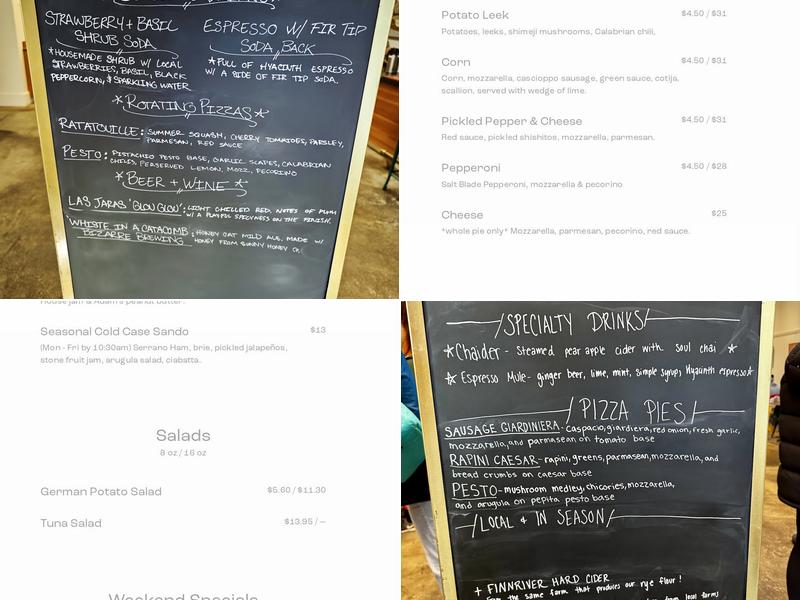 STRAWBERRY + BASIL
SHRUB SODA
*HOUSEMADE SHRUB W/ LOCAL
STRAWBERRIES, BASIL, BLACK
PEPPERCORN, & SPARKLING WATER
ESPRESSO W/ FIR TIP
SODA BACK
*PULL OF HYACINTH ESPRESSO
W/ A SIDE OF FIR TIP SODA.
*ROTATING PIZZAS*
RATATOUILLE: SUMMER SQUASH, CHERRY TOMATOES, PARSLEY,
PARMESAN, RED SAUCE
PESTO: PISTACHIO PESTO BASE, GARLIC SCAPES, CALABRIAN
CHILIS, PERSERVED LEMON, MOZZ, PECORINO
*BEER + WINE*
LAS JARAS 'GLOU GLOU': LIGHT CHILLED RED. NOTES OF PLUM
W/ A PLAYFUL SPICYNESS ON THE FINISH.
WHISTE IN A CATACOMB: HONEY OAT MILD ALE, MADE W/
BIZARRE BREWING HONEY FROM SUNNY HONEY CO.
Potato Leek $4.50 / $31
Potatoes, leeks, shimeji mushrooms, Calabrian chili,
Corn $4.50 / $31
Corn, mozzarella, cascioppo sausage, green sauce, cotija,
scallion, served with wedge of lime.
Pickled Pepper & Cheese $4.50 / $31
Red sauce, pickled shishitos, mozzarella, parmesan.
Pepperoni $4.50 / $28
Salt Blade Pepperoni, mozzarella & pecorino
Cheese $25
*whole pie only* Mozzarella, parmesan, pecorino, red sauce.
House jam & Adam's peanut butter.
Seasonal Cold Case Sando $13
(Mon - Fri by 10:30am) Serrano Ham, brie, pickled jalapeños,
stone fruit jam, arugula salad, ciabatta.
Salads
8 oz / 16 oz
German Potato Salad $5.60 / $11.30
Tuna Salad $13.95 / —
Weekend Specials
SPECIALTY DRINKS
*Chaider - Steamed pear apple cider with soul chai *
* Espresso Mule - ginger beer, lime, mint, simple syrup, Hyacinth espresso*
PIZZA PIES
SAUSAGE GIARDINIERA - Caspacio, giardiera, red onion, fresh garlic,
mozzarella, and parmasean on tomato base
RAPINI CAESAR - rapini, greens, parmasean, mozzarella, and
bread crumbs on caesar base
PESTO - mushroom medley, chicories, mozzarella,
and arugula on pepita pesto base
LOCAL & IN SEASON
+ FINNRIVER HARD CIDER
From the same farm that produces our rye flour!
from local farms